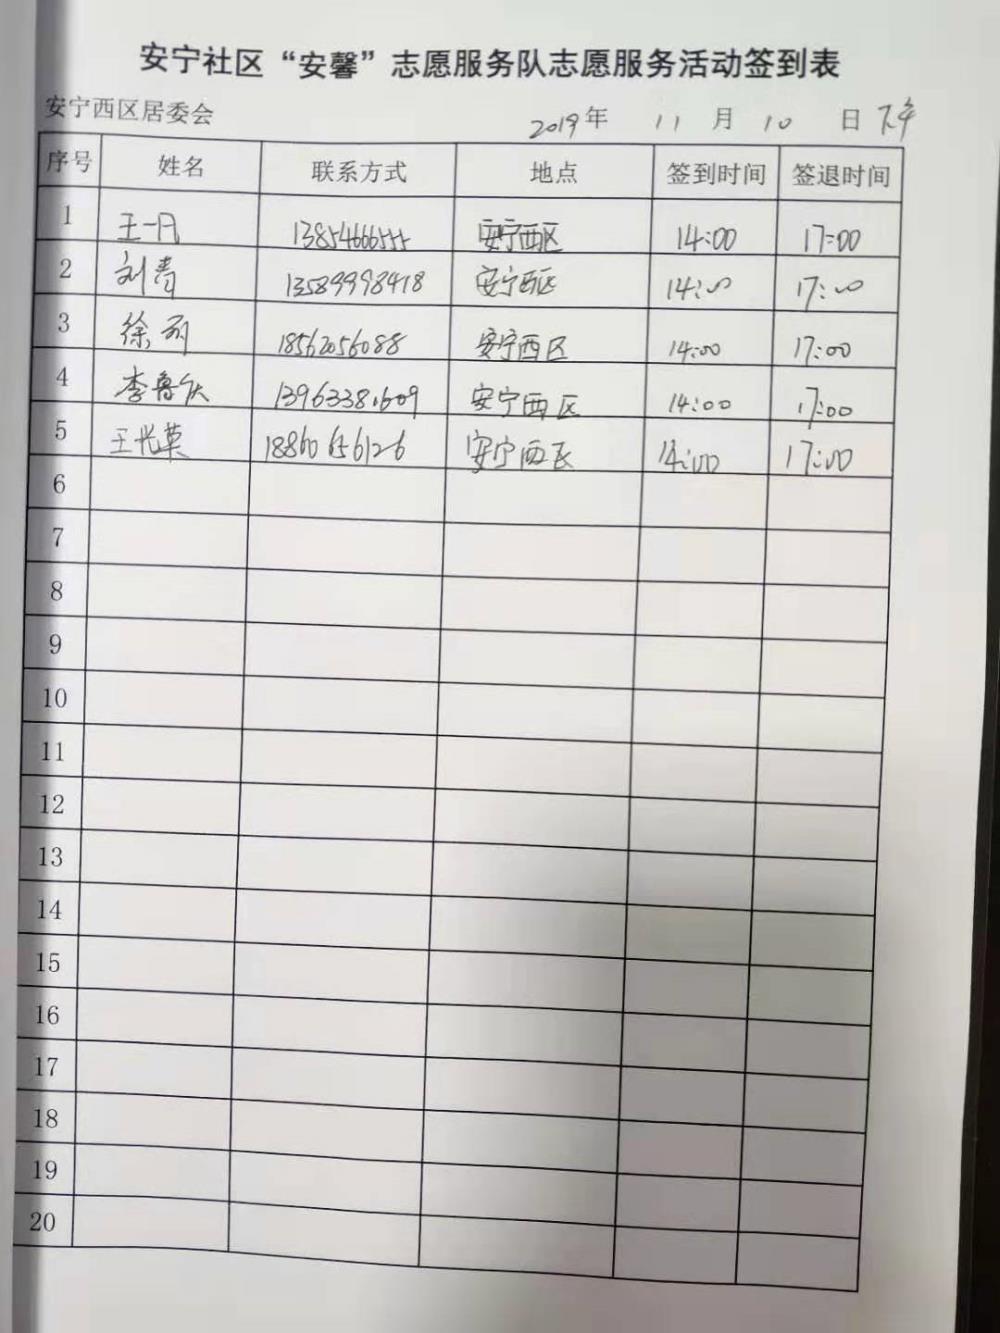 安宁社区“安馨”志愿服务队志愿服务活动签到表
安宁西区居委会 2019年 11 月 10 日 下午
序号 姓名 联系方式 地点 签到时间 签退时间
1 王一凡 13854666555 安宁西区 14:00 17:00
2 刘青 13589998418 安宁西区 14:00 17:00
3 徐 18562056088 安宁西区 14:00 17:00
4 李鲁 13963381609 安宁西区 14:00 17:00
5 王光英 18860656126 安宁西区 14:00 17:00
6
7
8
9
10
11
12
13
14
15
16
17
18
19
20